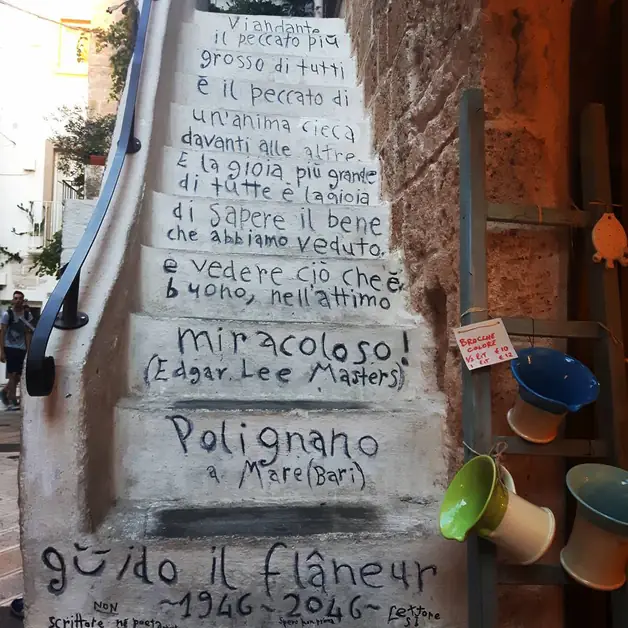 Viandante
il peccato più
grosso di tutti
è il peccato di
un'anima cieca
davanti alle altre.
E la gioia più grande
di tutte è la gioia
di sapere il bene
che abbiamo veduto,
e vedere ciò che è
buono, nell'attimo
miracoloso!
(Edgar Lee Masters)
Polignano
a Mare (Bari)
guido il flâneur
~1946~2046~
NON
scrittore né poeta
Spero non prima
Lettore
SI
BROCCHE
COLORE
1/2 LIT € 10
1 LIT € 12